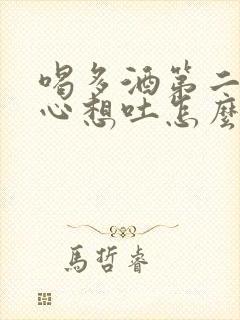 喝多酒第二
心想吐怎麼
馬哲睿